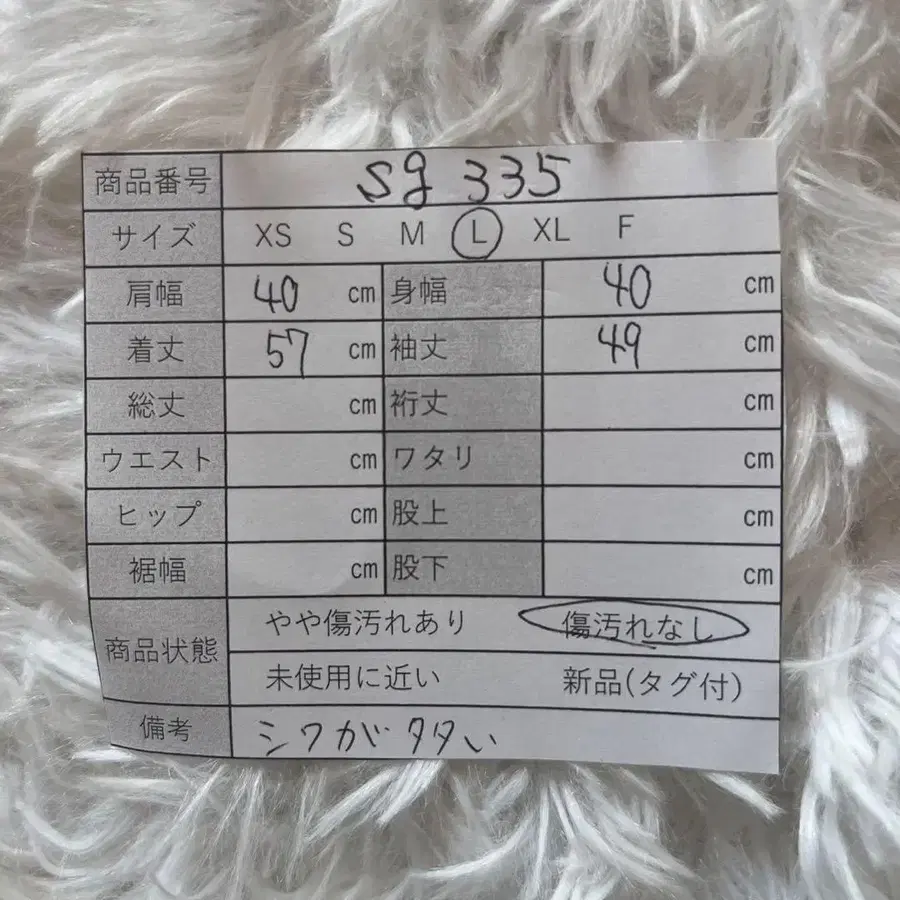 商品番号 sg 335
サイズ XS S M L XL F
肩幅 40 cm 身幅 40 cm
着丈 57 cm 袖丈 49 cm
総丈 cm 裄丈 cm
ウエスト cm ワタリ cm
ヒップ cm 股上 cm
裾幅 cm 股下 cm
商品状態 やや傷汚れあり 傷汚れなし
未使用に近い 新品(タグ付)
備考 シワが多い